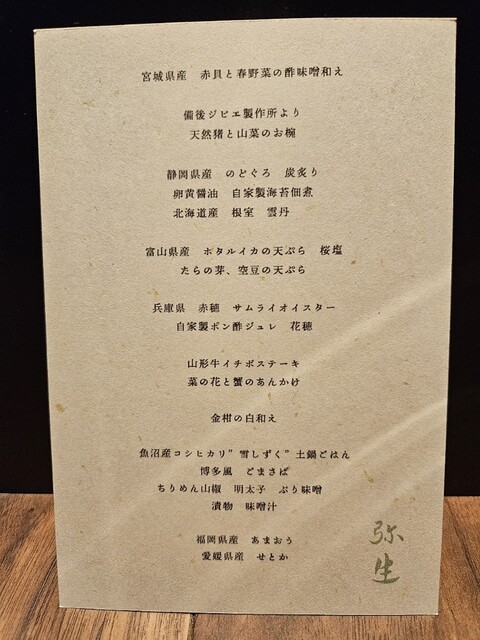 宮城県産　赤貝と春野菜の酢味噌和え
備後ジビエ製作所より
天然猪と山菜のお椀
静岡県産　のどぐろ　炭炙り
卵黄醤油　自家製海苔佃煮
北海道産　根室　雲丹
富山県産　ホタルイカの天ぷら　桜塩
たらの芽、空豆の天ぷら
兵庫県　赤穂　サムライオイスター
自家製ポン酢ジュレ　花穂
山形牛イチボステーキ
菜の花と蟹のあんかけ
金柑の白和え
魚沼産コシヒカリ”雪しずく”土鍋ごはん
博多風　ごまさば
ちりめん山椒　明太子　ぶり味噌
漬物　味噌汁
福岡県産　あまおう
愛媛県産　せとか
弥生